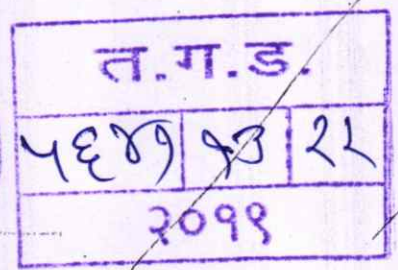 त.ग.ड.
५६४१ १३ २२
२०१९